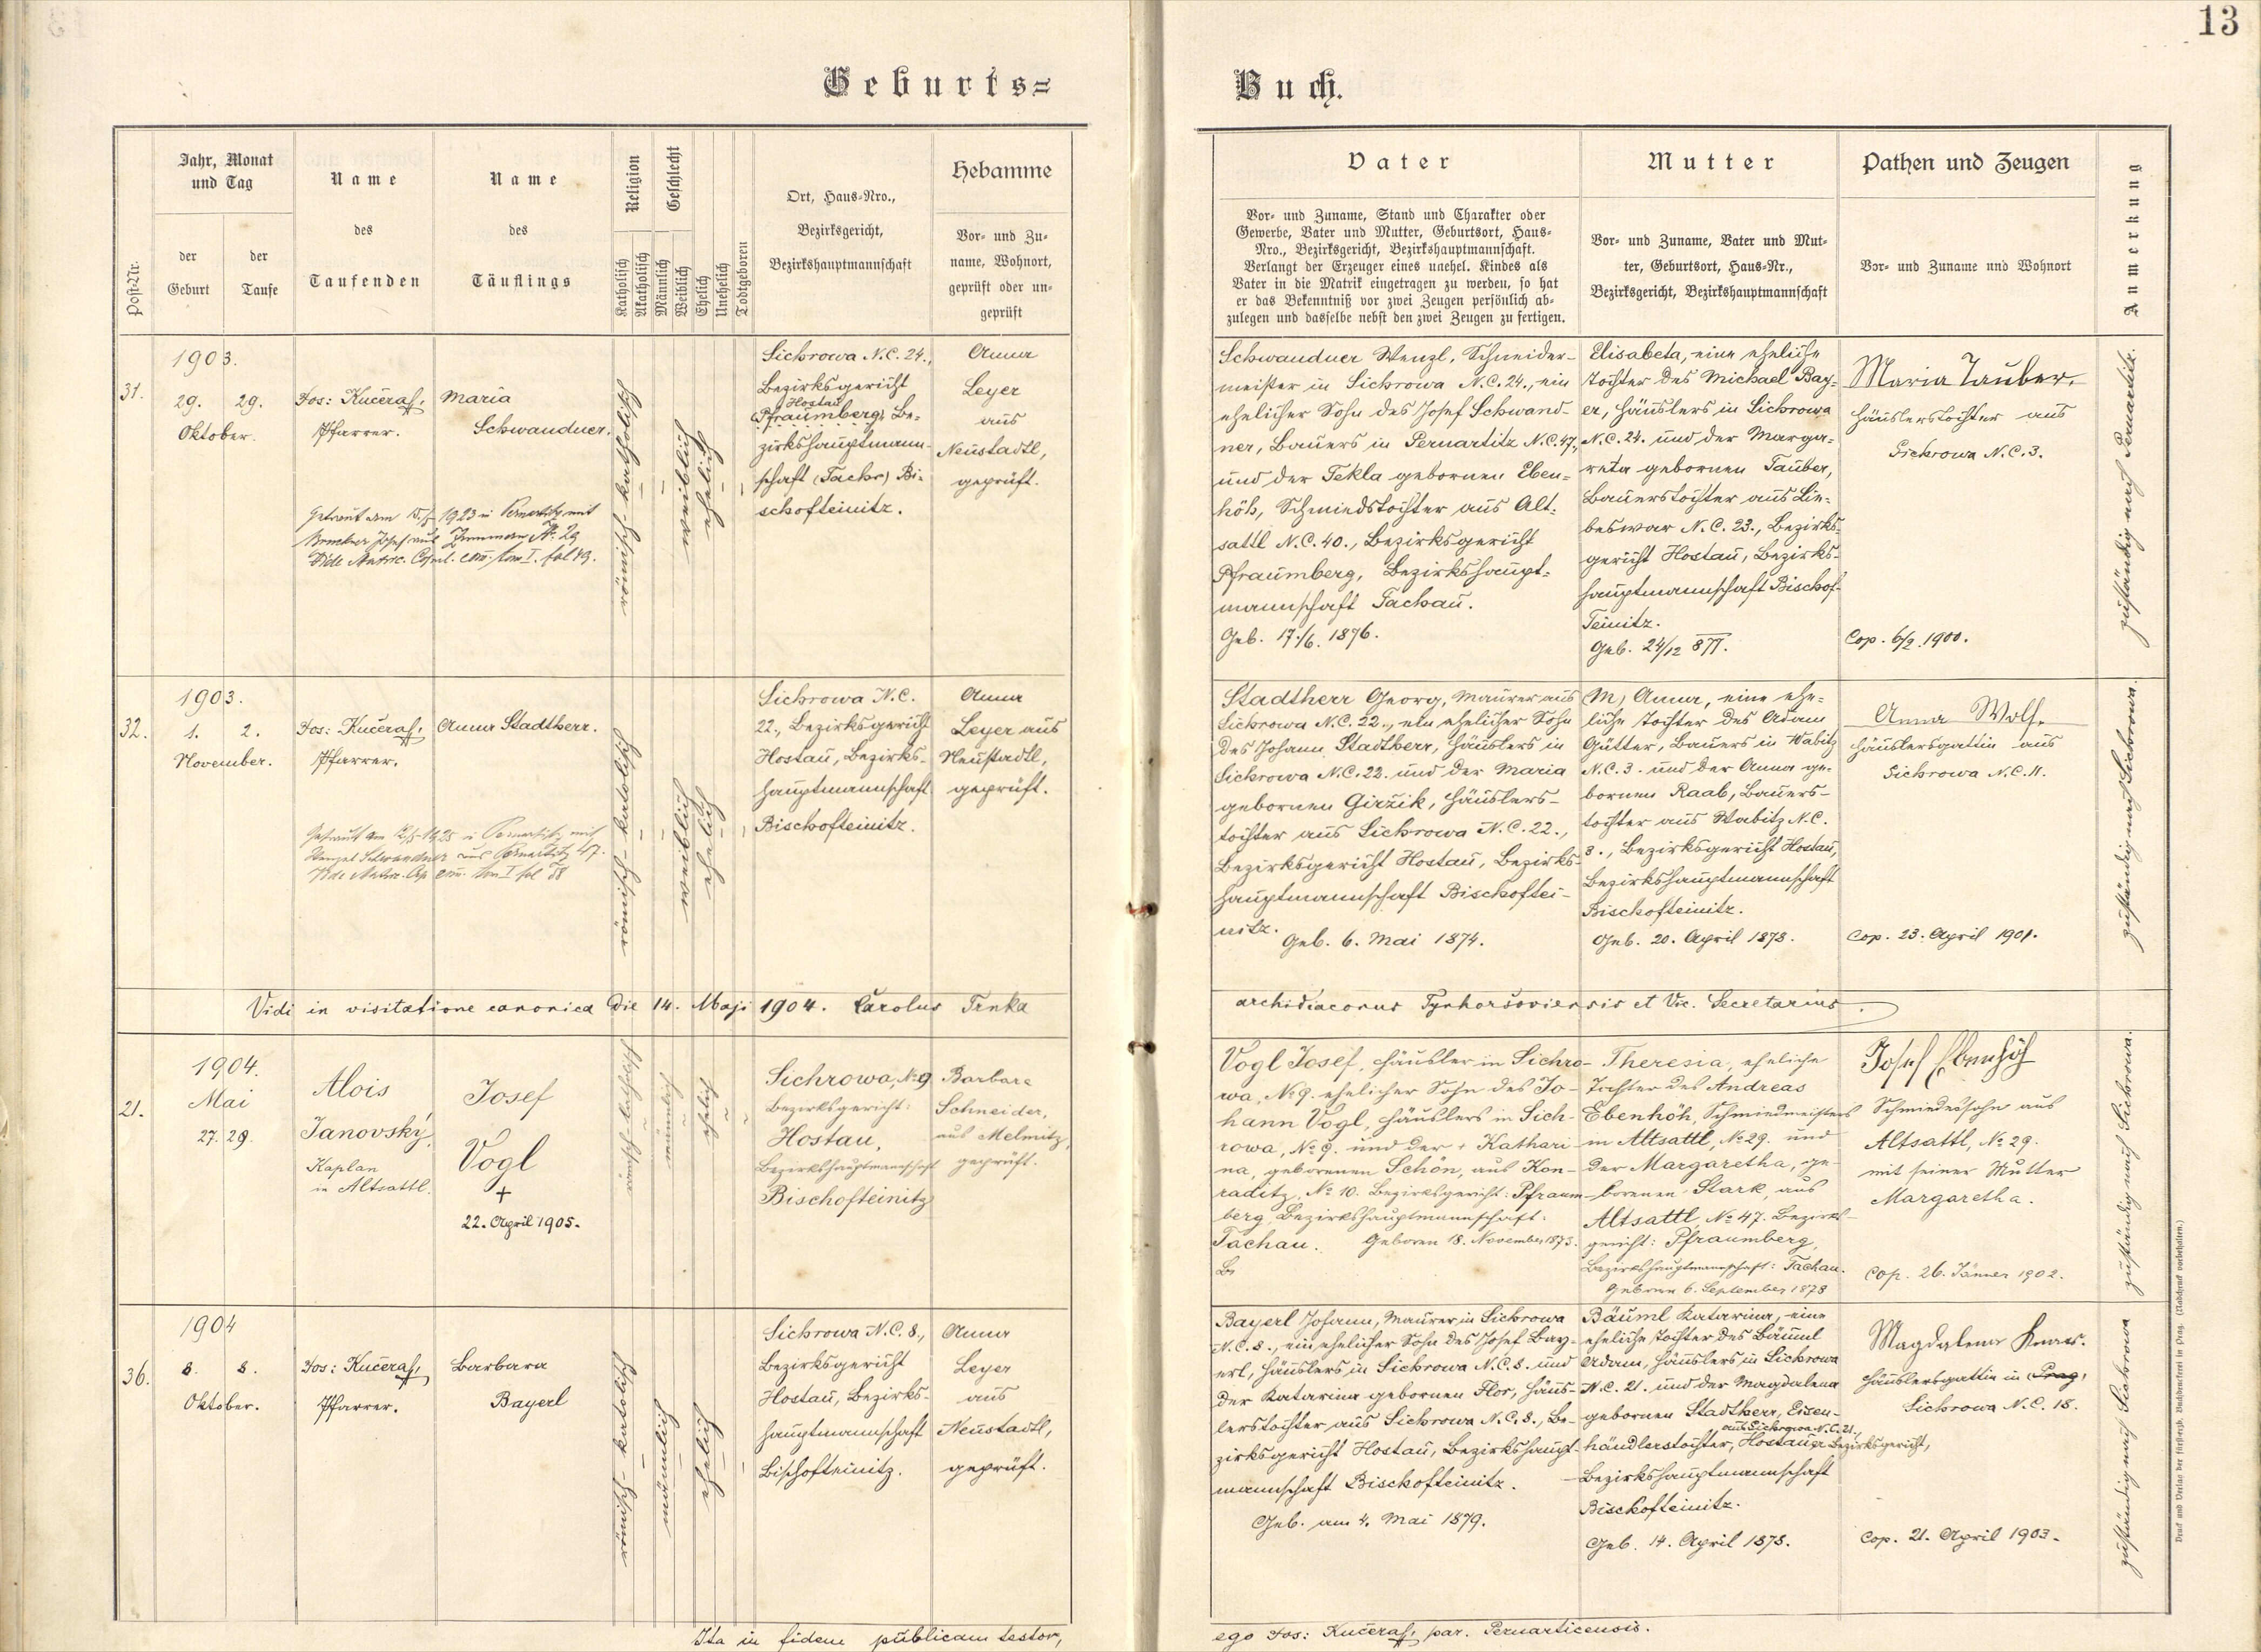 13
Geburts=
Buch.
Post-Nr.
Jahr, Monat
und Tag
der
Geburt
der
Taufe
Name
des
Taufenden
Name
des
Täuflings
Religion
Katholisch
Akatholisch
Geschlecht
Männlich
Weiblich
Ehelich
Unehelich
Todtgeboren
Ort, Haus-Nro.,
Bezirksgericht,
Bezirkshauptmannschaft
Hebamme
Vor- und Zu-
name, Wohnort,
geprüft oder un-
geprüft
Vater
Vor- und Zuname, Stand und Charakter oder
Gewerbe, Vater und Mutter, Geburtsort, Haus-
Nro., Bezirksgericht, Bezirkshauptmannschaft.
Verlangt der Erzeuger eines unehel. Kindes als
Vater in die Matrik eingetragen zu werden, so hat
er das Bekenntniß vor zwei Zeugen persönlich ab-
zulegen und dasselbe nebst den zwei Zeugen zu fertigen.
Mutter
Vor- und Zuname, Vater und Mut-
ter, Geburtsort, Haus-Nr.,
Bezirksgericht, Bezirkshauptmannschaft
Pathen und Zeugen
Vor- und Zuname und Wohnort
Anmerkung
31.
1903.
29. 29.
Oktober.
Jos: Kučeraf,
Pfarrer.
Maria
Schwandner.
Getraut am 1923 in Pernartitz mit
Josef aus Zummern N. 29
Vide Matric. Copul. tom I. fol 49.
römisch-katholisch
weiblich
ehelich
Sichrowa N.C. 24.,
Bezirksgericht
Hostau
(Pfraumberg) Be-
zirkshauptmann-
schaft (Tachr) Bi-
schofteinitz.
Anna
Leyer
aus
Neustadtl,
geprüft.
Schwandner Wenzl, Schneider-
meister in Sichrowa N.C. 24., ein
ehelicher Sohn des Josef Schwand-
ner, Bauers in Pernartitz N.C. 47.,
und der Tekla gebornen Eben-
höh, Schmiedstochter aus Alt-
sattl N.C. 40., Bezirksgericht
Pfraumberg, Bezirkshaupt-
mannschaft Tachau.
Geb. 17./6. 1876.
Elisabeta, eine eheliche
Tochter des Michael Bay-
er, Häuslers in Sichrowa
N.C. 24. und der Marga-
reta gebornen Tauber,
Bauerstochter aus Lie-
beswar N.C. 23., Bezirks-
gericht Hostau, Bezirks-
hauptmannschaft Bischof-
Teinitz.
Geb. 24/12 877.
Maria Tauber,
Häuslerstochter aus
Sichrowa N.C. 3.
Cop. 6/2. 1900.
zuständig nach Pernartitz.
32.
1903.
1. 2.
November.
Jos: Kučeraf,
Pfarrer.
Anna Stadtherr.
Getraut am 12/5 1925 in Pernartitz mit
Wenzel Schwandner aus Pernartitz 47.
Vide Matric. Cop. tom I fol 58
römisch-katolisch
weiblich
ehelich
Sichrowa N.C.
22., Bezirksgericht
Hostau, Bezirks-
hauptmannschaft
Bischofteinitz.
Anna
Leyer aus
Neustadtl,
geprüft.
Stadtherr Georg, Maurer aus
Sichrowa N.C. 22., ein ehelicher Sohn
des Johann Stadtherr, Häuslers in
Sichrowa N.C. 22. und der Maria
gebornen Giržik, Häuslers-
tochter aus Sichrowa N.C. 22.,
Bezirksgericht Hostau, Bezirks-
hauptmannschaft Bischoftei-
nitz.
Geb. 6. Mai 1874.
(M) Anna, eine ehe-
liche Tochter des Adam
Gütter, Bauers in Wabitz
N.C. 3. und der Anna ge-
bornen Raab, Bauers-
tochter aus Wabitz N.C.
3., Bezirksgericht Hostau,
Bezirkshauptmannschaft
Bischofteinitz.
Geb. 20. April 1878.
Anna Wolf.
Häuslersgattin aus
Sichrowa N.C. 11.
Cop. 23. April 1901.
zuständig nach Sichrowa.
Vidi in visitatione canonica die 14. Maji 1904. Carolus Trnka archidiaconus Tynhoršoviensis et Vic. Secretarius.
21.
1904.
Mai
27. 29.
Alois
Janovský,
Kaplan
in Altsattl.
Josef
Vogl
+
22. April 1905.
römisch-katholisch
männlich
ehelich
Sichrowa, № 9
Bezirksgericht:
Hostau,
Bezirkshauptmannschaft
Bischofteinitz
Barbara
Schneider,
aus Melmitz,
geprüft.
Vogl Josef, Häusler in Sichro-
wa, № 9. ehelicher Sohn des Jo-
hann Vogl, Häuslers in Sich-
rowa, № 9. und der + Kathari-
na, geborenen Schön, aus Kon-
raditz, № 10. Bezirksgericht: Pfraum-
berg, Bezirkshauptmannschaft:
Tachau. Geboren 18. November 1873.
Be
Theresia, eheliche
Tochter des Andreas
Ebenhöh, Schmiedmeisters
in Altsattl, № 29. und
der Margaretha, ge-
borenen Stark, aus
Altsattl, № 47. Bezirks-
gericht: Pfraumberg,
Bezirkshauptmannschaft: Tachau.
Geboren 6. September 1878
Josef Ebenhöh
Schmiedessohn aus
Altsattl, № 29.
mit seiner Mutter
Margaretha.
Cop. 26. Jänner 1902.
zuständig nach Sichrowa.
36.
1904
8. 8.
Oktober.
Jos: Kučeraf,
Pfarrer.
Barbara
Bayerl
römisch-katolisch
männlich
ehelich
Sichrowa N.C. 8.,
Bezirksgericht
Hostau, Bezirks-
hauptmannschaft
Bischofteinitz.
Anna
Leyer
aus
Neustadtl,
geprüft.
Bayerl Johann, Maurer in Sichrowa
N.C. 8., ein ehelicher Sohn des Josef Bay-
erl, Häuslers in Sichrowa N.C. 8. und
der Katarina gebornen Flor, Häus-
lerstochter aus Sichrowa N.C. 8., Be-
zirksgericht Hostau, Bezirkshaupt-
mannschaft Bischofteinitz.
Geb. am 4. Mai 1879.
Bäuml Katarina, eine
eheliche Tochter des Bäuml
Adam, Häuslers in Sichrowa
N.C. 21. und der Magdalena
gebornen Stadtherr, Eisen-
aus Sichrowa N.C. 21.,
händlerstochter, Hostauer Bezirksgericht,
Bezirkshauptmannschaft
Bischofteinitz.
Geb. 14. April 1878.
Magdalena
Häuslersgattin in Prag,
Sichrowa N.C. 18.
Cop. 21. April 1903.
zuständig nach Sichrowa
Ita in fidem publicam testor, ego Jos: Kučeraf, par. Pernarticensis.
Druck und Verlag der fürsterzb. Buchdruckerei in Prag. (Nachdruck vorbehalten.)